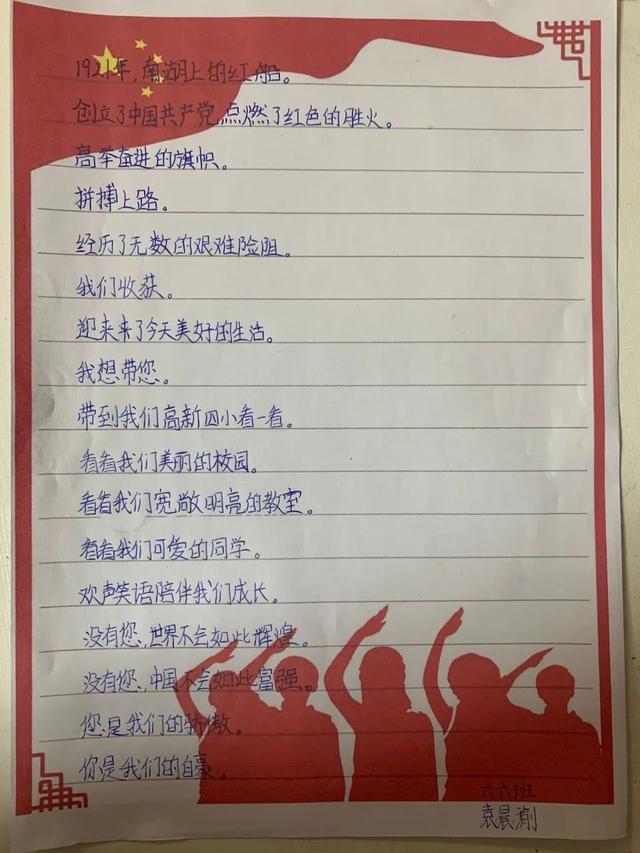 1921年,南湖上的红船。
创立了中国共产党,点燃了红色的胜火。
高举奋进的旗帜。
拼搏上路。
经历了无数的艰难险阻。
我们收获。
迎来来了今天美好的生活。
我想带您。
带到我们高新四小看一看。
看看我们美丽的校园。
看看我们宽敞明亮的教室。
看看我们可爱的同学。
欢声笑语陪伴我们成长。
没有您,世界不会如此辉煌。
没有您,中国不会如此富强。
您是我们的骄傲。
你是我们的自豪。
六六班
袁晨